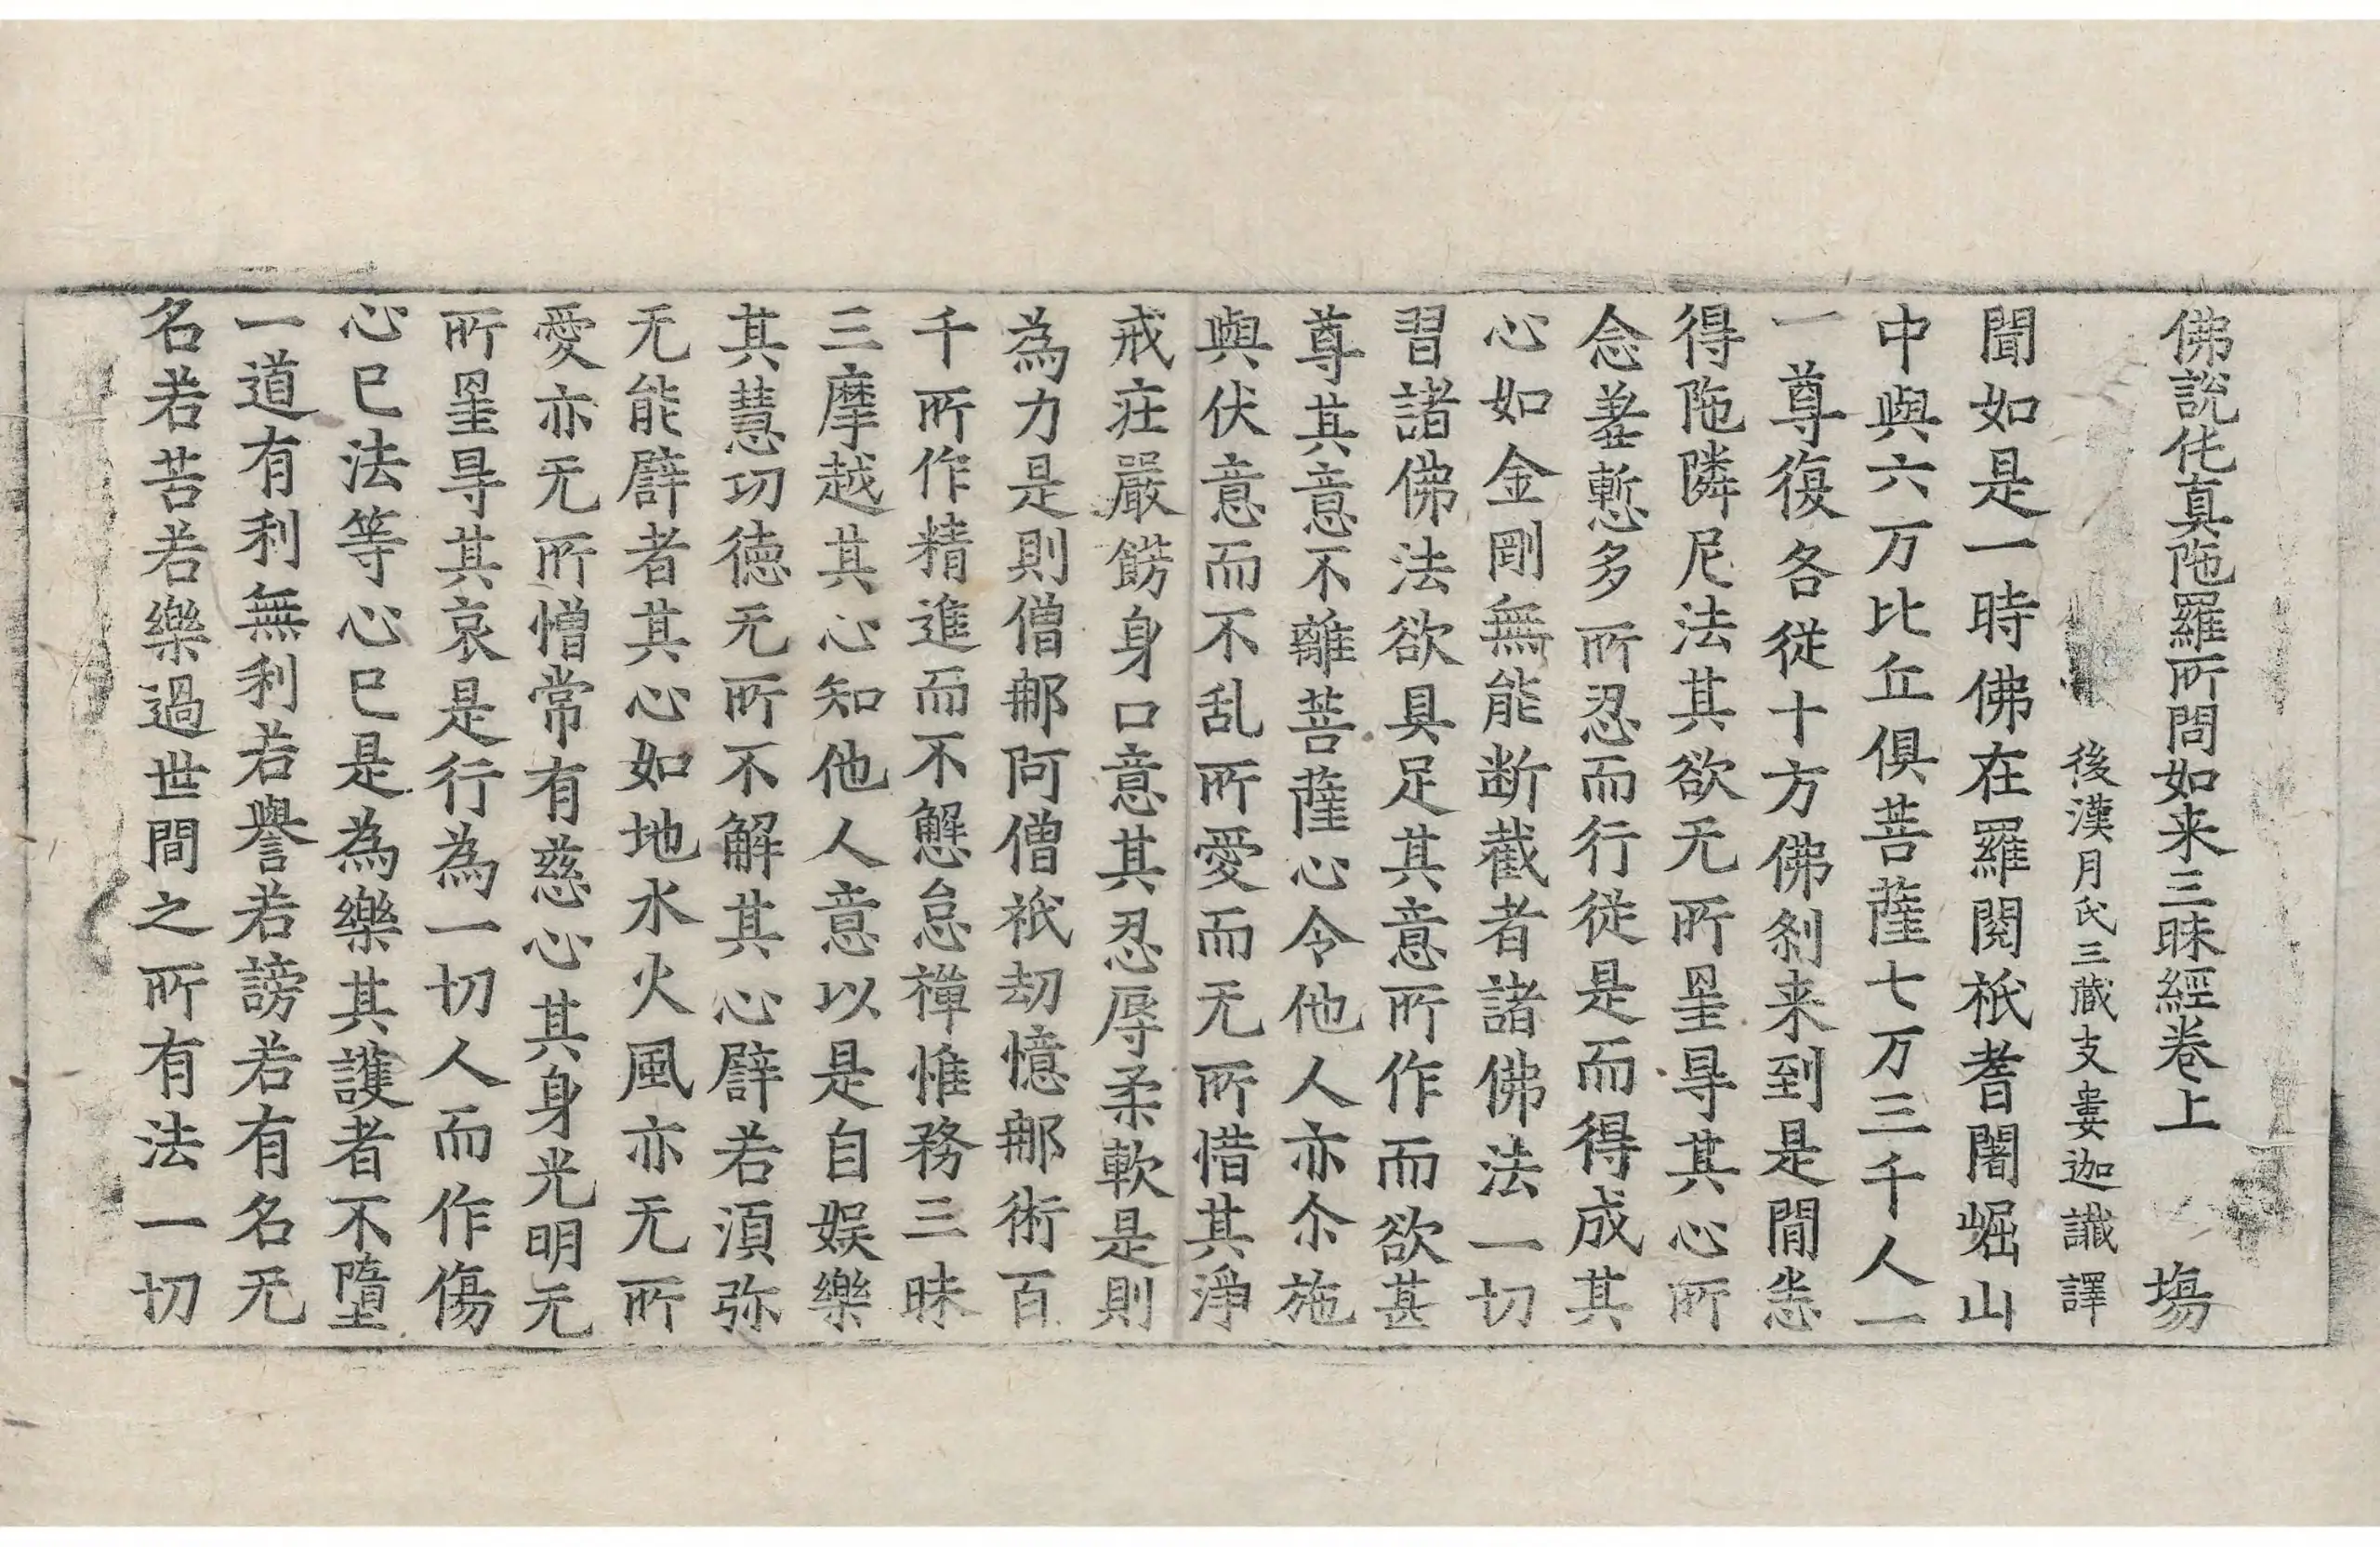 佛說伅真陁羅所問如来三昧經卷上 塲
後漢月氏三藏支婁迦讖譯
聞如是一時佛在羅閱祇耆闍崛山
中與六万比丘俱菩薩七万三千人一
一尊復各從十方佛剎来到是閒悉
得陁隣尼法其欲无所罣㝵其心所
念羞慙多所忍而行從是而得成其
心如金剛無能断截者諸佛法一切
習諸佛法欲具足其意所作而欲甚
尊其意不離菩薩心令他人亦尒施
與伏意而不乱所愛而无所惜其淨
戒莊嚴餝身口意其忍辱柔軟是則
為力是則僧那阿僧祇劫憶那術百
千所作精進而不懈怠禪惟務三昧
三摩越其心知他人意以是自娛樂
其慧功德无所不解其心辟若須弥
无能辟者其心如地水火風亦无所
愛亦无所憎常有慈心其身光明无
所罣㝵其哀是行為一切人而作傷
心已法等心已是為樂其護者不墮
一道有利無利若譽若謗若有名无
名若苦若樂過世間之所有法一切